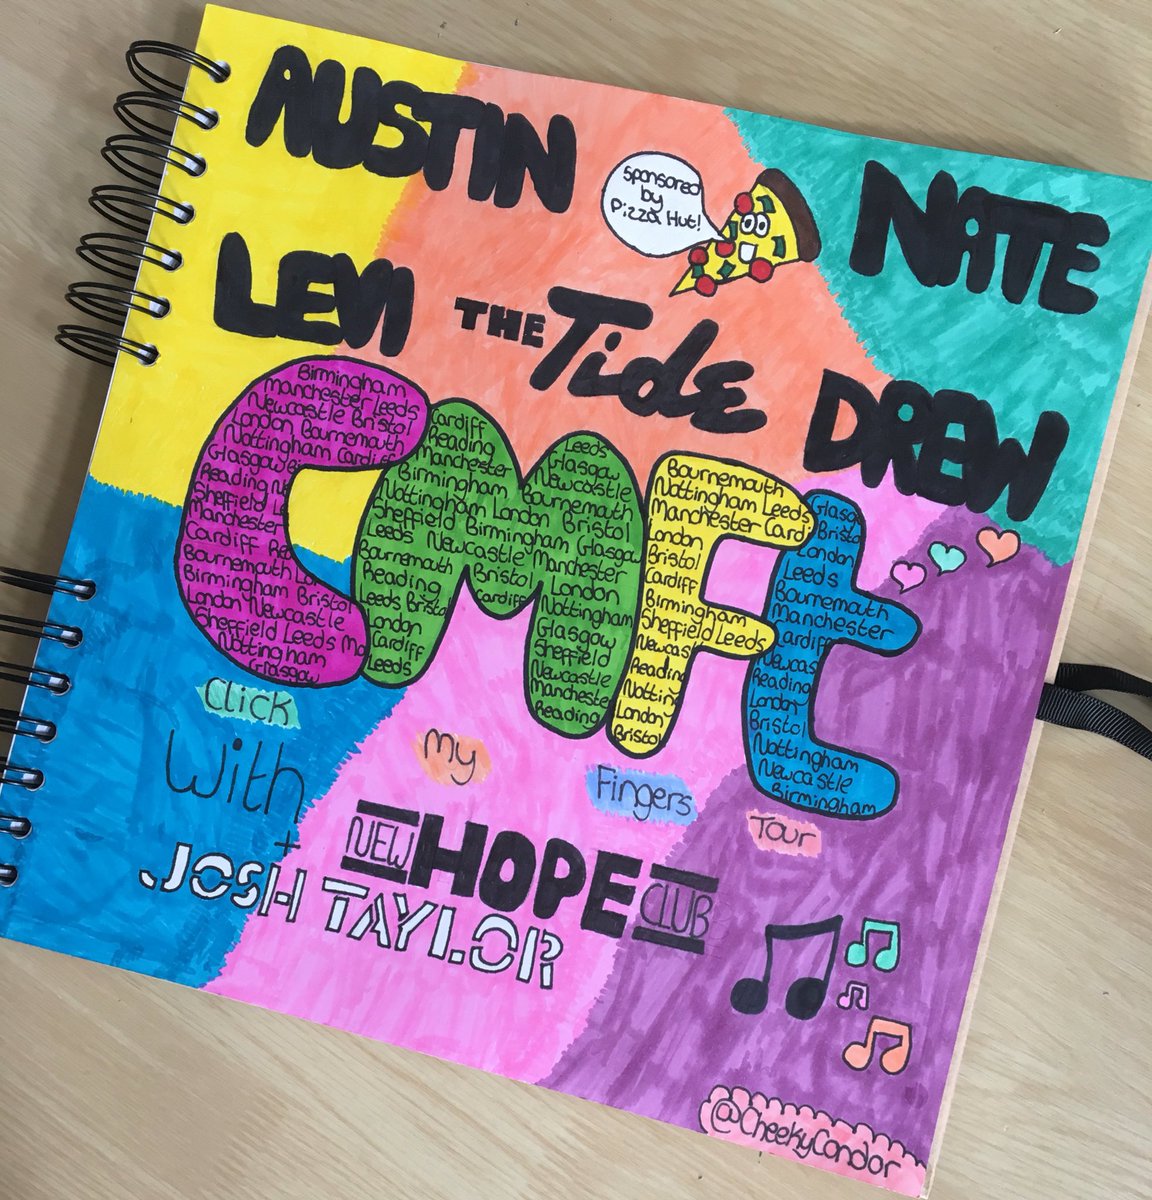 AUSTIN
sponsored
by
Pizza Hut!
NATE
LEVI
THE Tide
DREW
CMFT
Birmingham
Manchester Leeds
Newcastle Bristol
London Bournemouth
Nottingham Cardiff
Glasgow Bir
Reading Ne
Sheffield
Manchester
Cardiff Re
Bournemouth Lo
Birmingham Bristol
London Newcastle
Sheffield Leeds Ma
Nottingham
Glasgow
Cardiff
Reading
Manchester
Birmingham
Nottingham London
Sheffield Birmingham
Leeds Newcastle
Bournemouth
Reading
Leeds Bristo
London
Cardiff
Leeds
Bristol
Cardiff
Leeds
Glasgow
Newcastle
Bournemouth
Bristol
Glasgo
Manchester
London
Nottingham
Glasgow
Sheffield
Newcastle
Manchester
Reading
Bournemouth
Nottingham Leeds
Manchester Cardi
London
Bristol
Cardiff
Birmingham
Sheffield Leeds
Newcas
Reading
Notting
London
Bristol
Glasgo
Bristo
London
Leeds
Bournemouth
Manchester
Cardiff
Newcas
Reading
London
Bristol
Nottingham
Newcastle
Birmingham
Click
My
Fingers
Tour
With
+
NEW HOPE CLUB
JOSH TAYLOR
@CheekyCondor